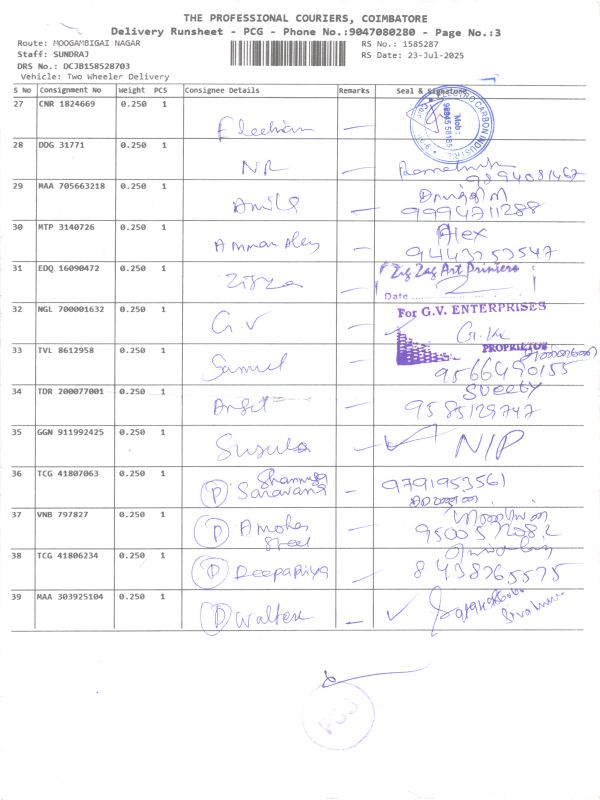 THE PROFESSIONAL COURIERS, COIMBATORE
Delivery Runsheet - PCG - Phone No.:9047080280 - Page No.:3
Route: MOOGAMBIGAI NAGAR
RS No.: 1585287
Staff: SUNDRAJ
RS Date: 23-Jul-2025
DRS No.: DCJB158528703
Vehicle: Two Wheeler Delivery
S No Consignment No Weight PCS Consignee Details Remarks Seal & Signature
27 CNR 1824669 0.250 1
ELECTRO CARBON INDUSTRIES
Mob
28 DDG 31771 0.250 1 NR
9894081467
29 MAA 705663218 0.250 1
9994711288
30 MTP 3140726 0.250 1 Amman Alex
9443753547
31 EDQ 16090472 0.250 1 Zig Zag Art Printers
Date
32 NGL 700001632 0.250 1 G V For G.V. ENTERPRISES
PROPRIETOR
33 TVL 8612958 0.250 1 Samuel
9566490155
34 TDR 200077001 0.250 1 Sweety
9585129747
35 GGN 911992425 0.250 1 Susula N/P
36 TCG 41807063 0.250 1 P Saravana 9791953561
37 VNB 797827 0.250 1 P Steel
38 TCG 41806234 0.250 1 P Deepapriya 8438765575
39 MAA 303925104 0.250 1 P
PCG